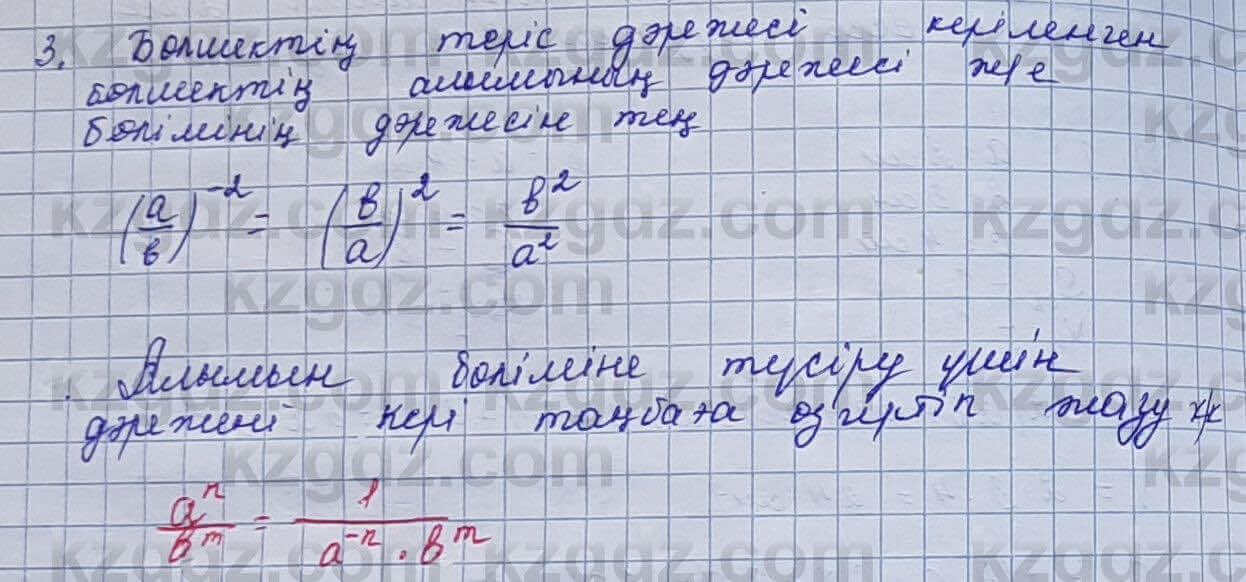 3. Бөлшектің теріс дәрежесі керіленген
бөлшектің алымының дәрежесі және
бөлімінің дәрежесін тең
(a/в)^-2 = (в/a)^2 = в^2/a^2
Алымын бөліміне түсіру үшін
дәрежені кері таңбаға өзгертіп жазу к/к
a^n/в^m = 1/(a^-n · в^m)
kzgdz.com